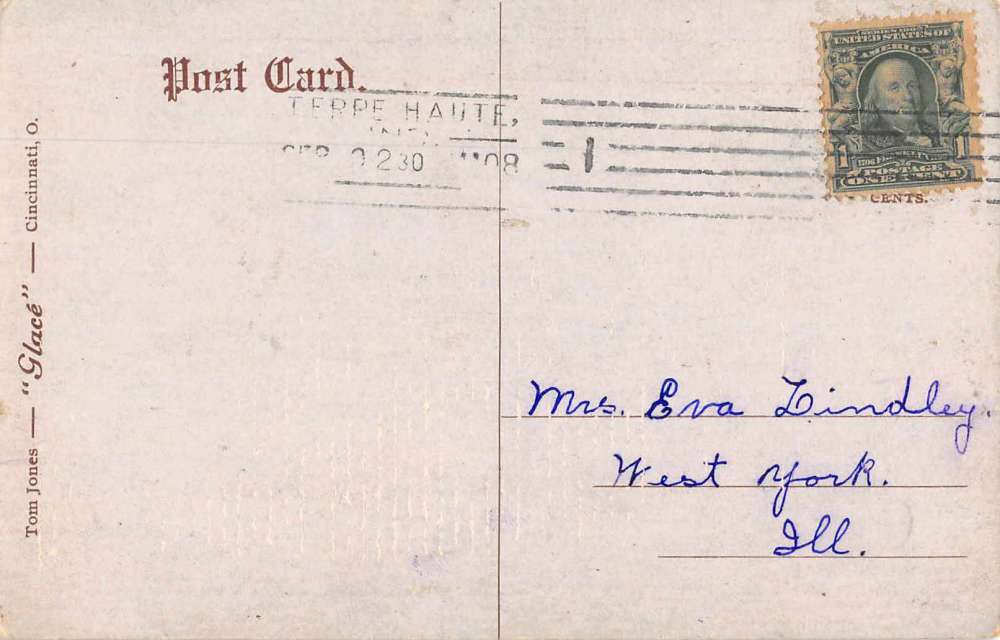 Post Card.
TERRE HAUTE,
IND.
SEP 230
1
SERIES 1902
UNITED STATES OF
AMERICA
1 FRANKLIN 1
POSTAGE
ONE CENT
CENTS.
Tom Jones — "Glacé" — Cincinnati, O.
Mrs. Eva Lindley.
West York.
Ill.